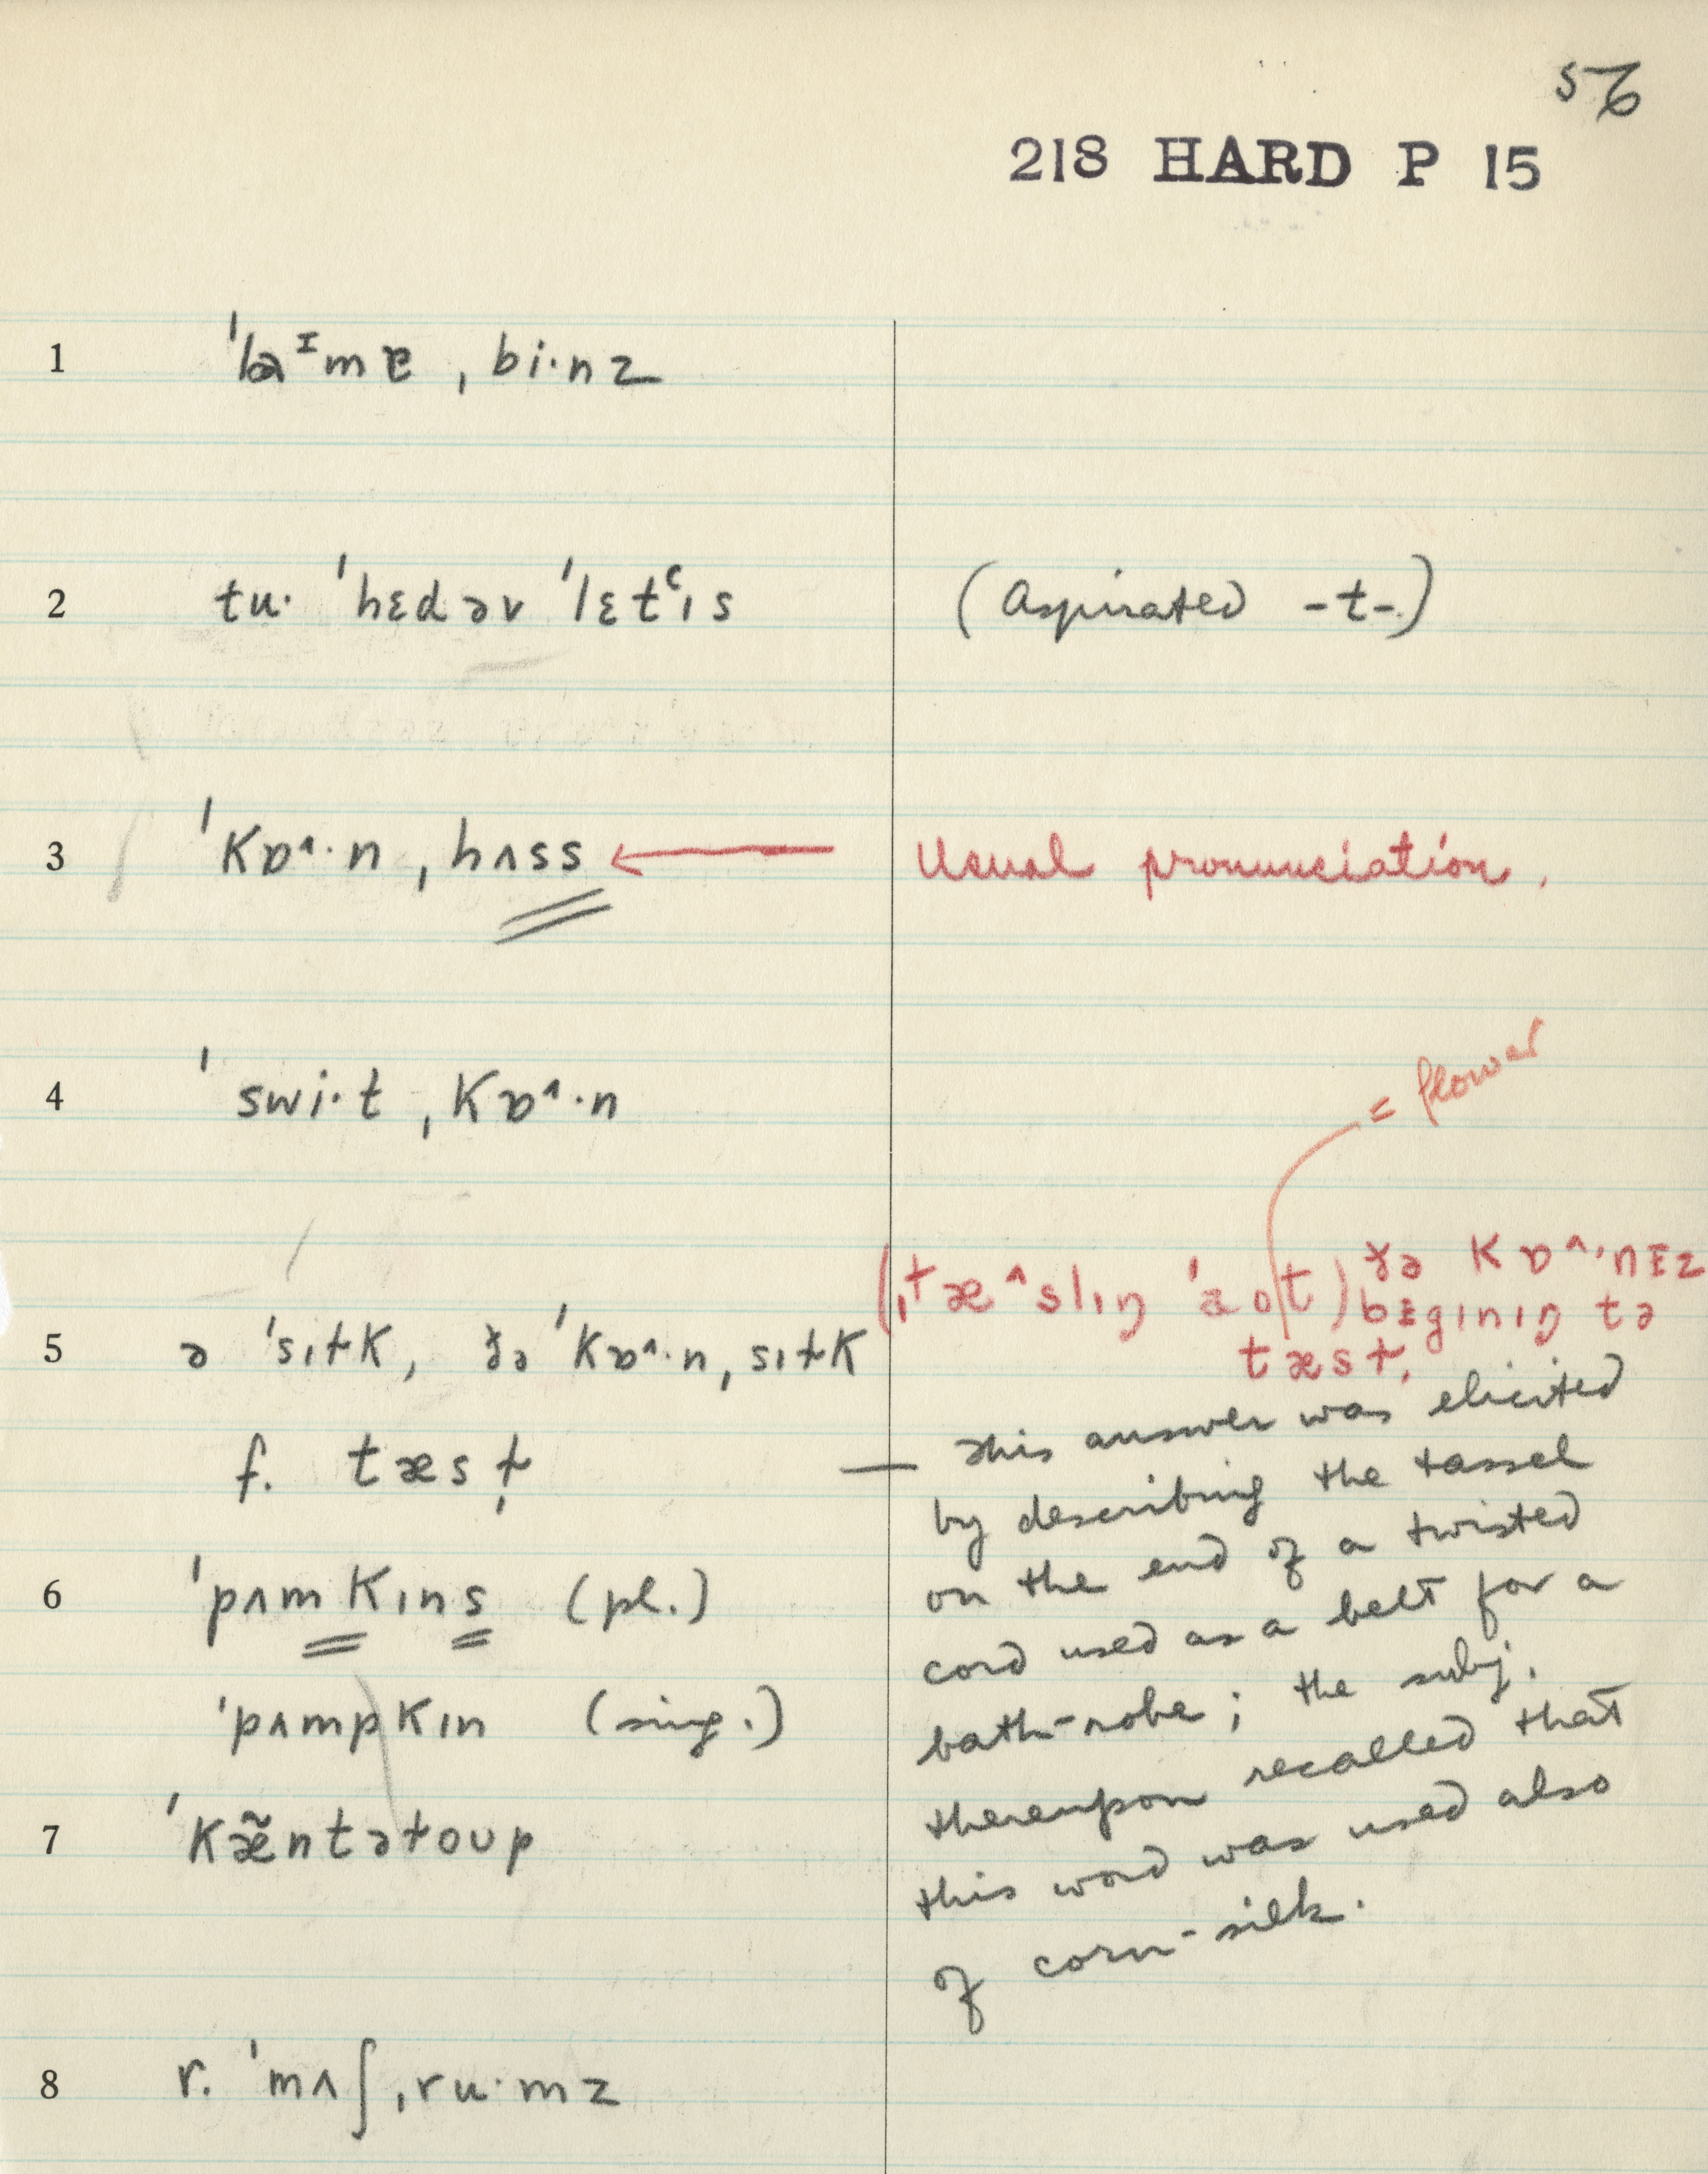 56
218 HARD P 15
1 ˈlaᴵmɐ ˌbi·nz
2 tu· ˈhɛdəv ˈlɛtʿɪs (Aspirated -t-)
3 ˈkɒ^·n ˌhʌss Usual pronunciation.
4 ˈswi·t ˌkɒ^·n
= flower
(ˌtæ^slɪŋ ˈaʊt) ðə kɒ^·nᵻz
bᵻgɪnɪŋ tə
5 ə ˈsɪɫk, ðə ˈkɒ^·nˌsɪɫk tæsɫ̩.
f. tæsɫ̩ — This answer was elicited
by describing the tassel
on the end of a twisted
6 ˈpʌmkɪns (pl.) cord used as a belt for a
ˈpʌmpkɪn (sing.) bath-robe; the subj.
thereupon recalled that
7 ˈkæ̃ntəɫoʊp this word was used also
of corn-silk.
8 r. ˈmʌʃˌru·mz